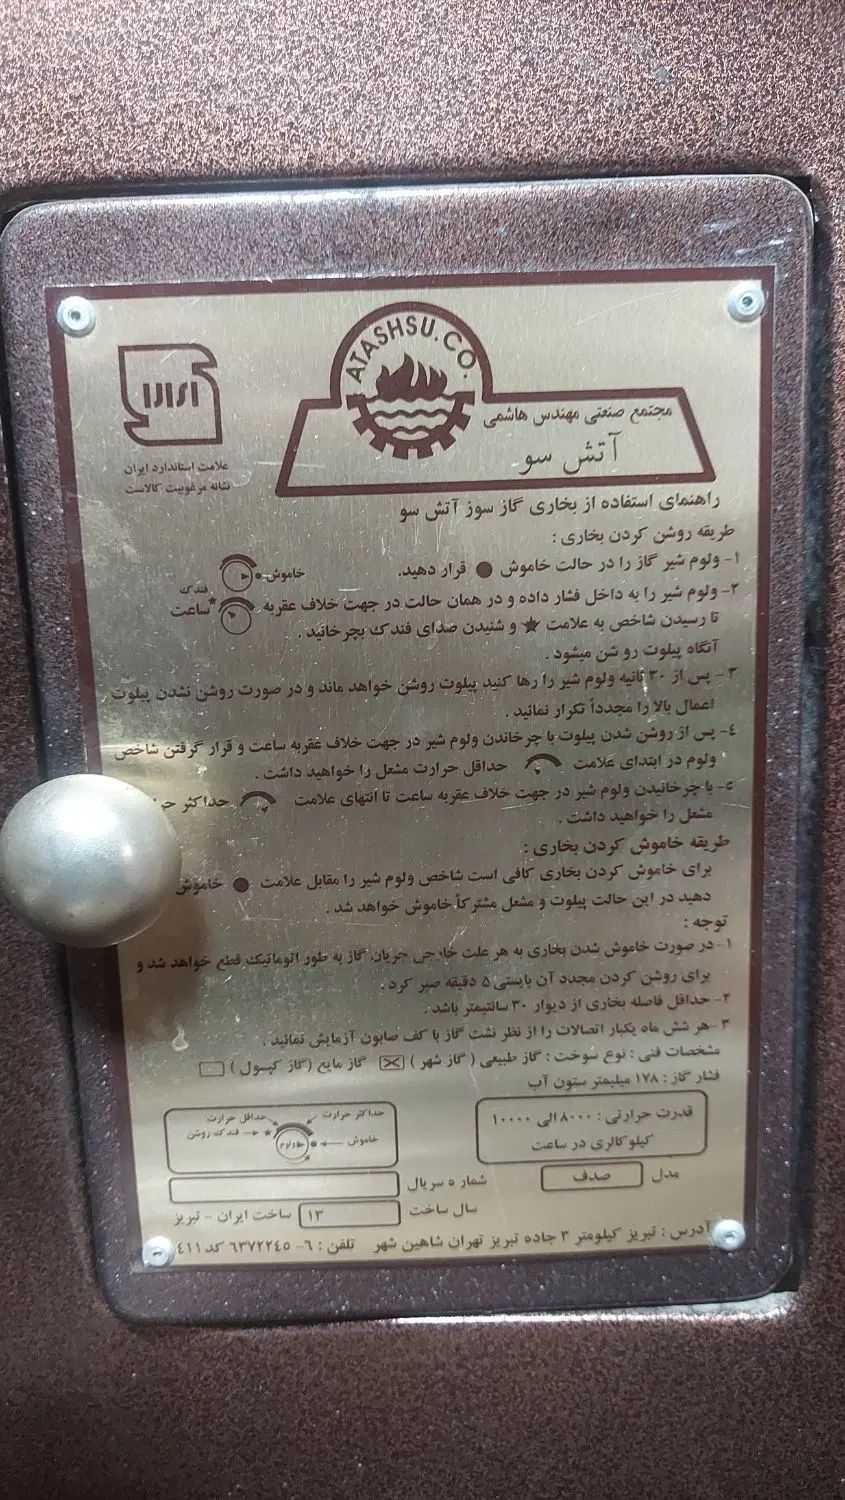 ATASHSU.CO.
مجتمع صنعتی مهندس هاشمی
آتش سو
علامت استاندارد ایران
نشانه مرغوبیت کالاست
راهنمای استفاده از بخاری گاز سوز آتش سو
طریقه روشن کردن بخاری :
۱- ولوم شیر گاز را در حالت خاموش ● قرار دهید. خاموش
۲- ولوم شیر را به داخل فشار داده و در همان حالت در جهت خلاف عقربه ساعت فندک
تا رسیدن شاخص به علامت ★ و شنیدن صدای فندک بچرخانید .
آنگاه پیلوت رو شن میشود .
۳- پس از ۳۰ ثانیه ولوم شیر را رها کنید پیلوت روشن خواهد ماند و در صورت روشن نشدن پیلوت
اعمال بالا را مجدداً تکرار نمائید .
٤- پس از روشن شدن پیلوت با چرخاندن ولوم شیر در جهت خلاف عقربه ساعت و قرار گرفتن شاخص
ولوم در ابتدای علامت حداقل حرارت مشعل را خواهید داشت .
۵- با چرخانیدن ولوم شیر در جهت خلاف عقربه ساعت تا انتهای علامت حداکثر
مشعل را خواهید داشت .
طریقه خاموش کردن بخاری :
برای خاموش کردن بخاری کافی است شاخص ولوم شیر را مقابل علامت ● خاموش
دهید در این حالت پیلوت و مشعل مشترکاً خاموش خواهد شد .
توجه :
۱- در صورت خاموش شدن بخاری به هر علت خارجی جریان گاز به طور اتوماتیک قطع خواهد شد و
برای روشن کردن مجدد آن بایستی ۵ دقیقه صبر کرد .
۲- حداقل فاصله بخاری از دیوار ۳۰ سانتیمتر باشد .
۳- هر شش ماه یکبار اتصالات را از نظر نشت گاز با کف صابون آزمایش نمائید .
مشخصات فنی : نوع سوخت : گاز طبیعی ( گاز شهر ) ☒ گاز مایع (گاز کپسول ) ☐
فشار گاز : ۱۷۸ میلیمتر ستون آب
قدرت حرارتی : ۸۰۰۰ الی ۱۰۰۰۰
کیلوکالری در ساعت
حداکثر حرارت
حداقل حرارت
فندک روشن
ولوم
خاموش
مدل صدف شماره سریال
سال ساخت ۱۳ ساخت ایران - تبریز
آدرس : تبریز کیلومتر ۳ جاده تبریز تهران شاهین شهر تلفن : ٦- ٦٣٧٢٢٤٥ کد ٤١١